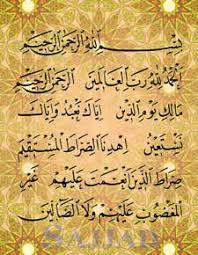 بِسْمِ اللهِ الرَّحْمٰنِ الرَّحِيْمِ
اَلْحَمْدُ لِلّٰهِ رَبِّ الْعَالَمِيْنَ الرَّحْمٰنِ الرَّحِيْمِ
مَالِكِ يَوْمِ الدِّيْنِ اِيَّاكَ نَعْبُدُ وَاِيَّاكَ
نَسْتَعِيْنُ اِهْدِنَا الصِّرَاطَ الْمُسْتَقِيْمَ
صِرَاطَ الَّذِيْنَ اَنْعَمْتَ عَلَيْهِمْ غَيْرِ
الْمَغْضُوْبِ عَلَيْهِمْ وَلَا الضَّالِّيْنَ
SAJJAD